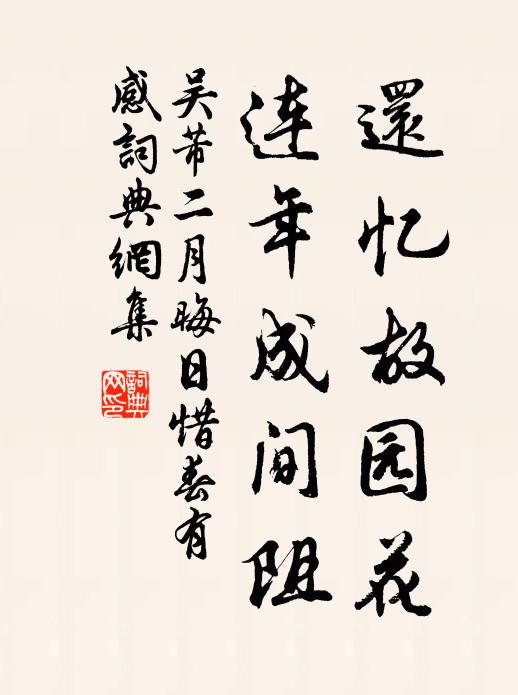 還忆故园花
连年成间阻
吴芾二月晦日惜春有
感詞典網集
詞典
网印